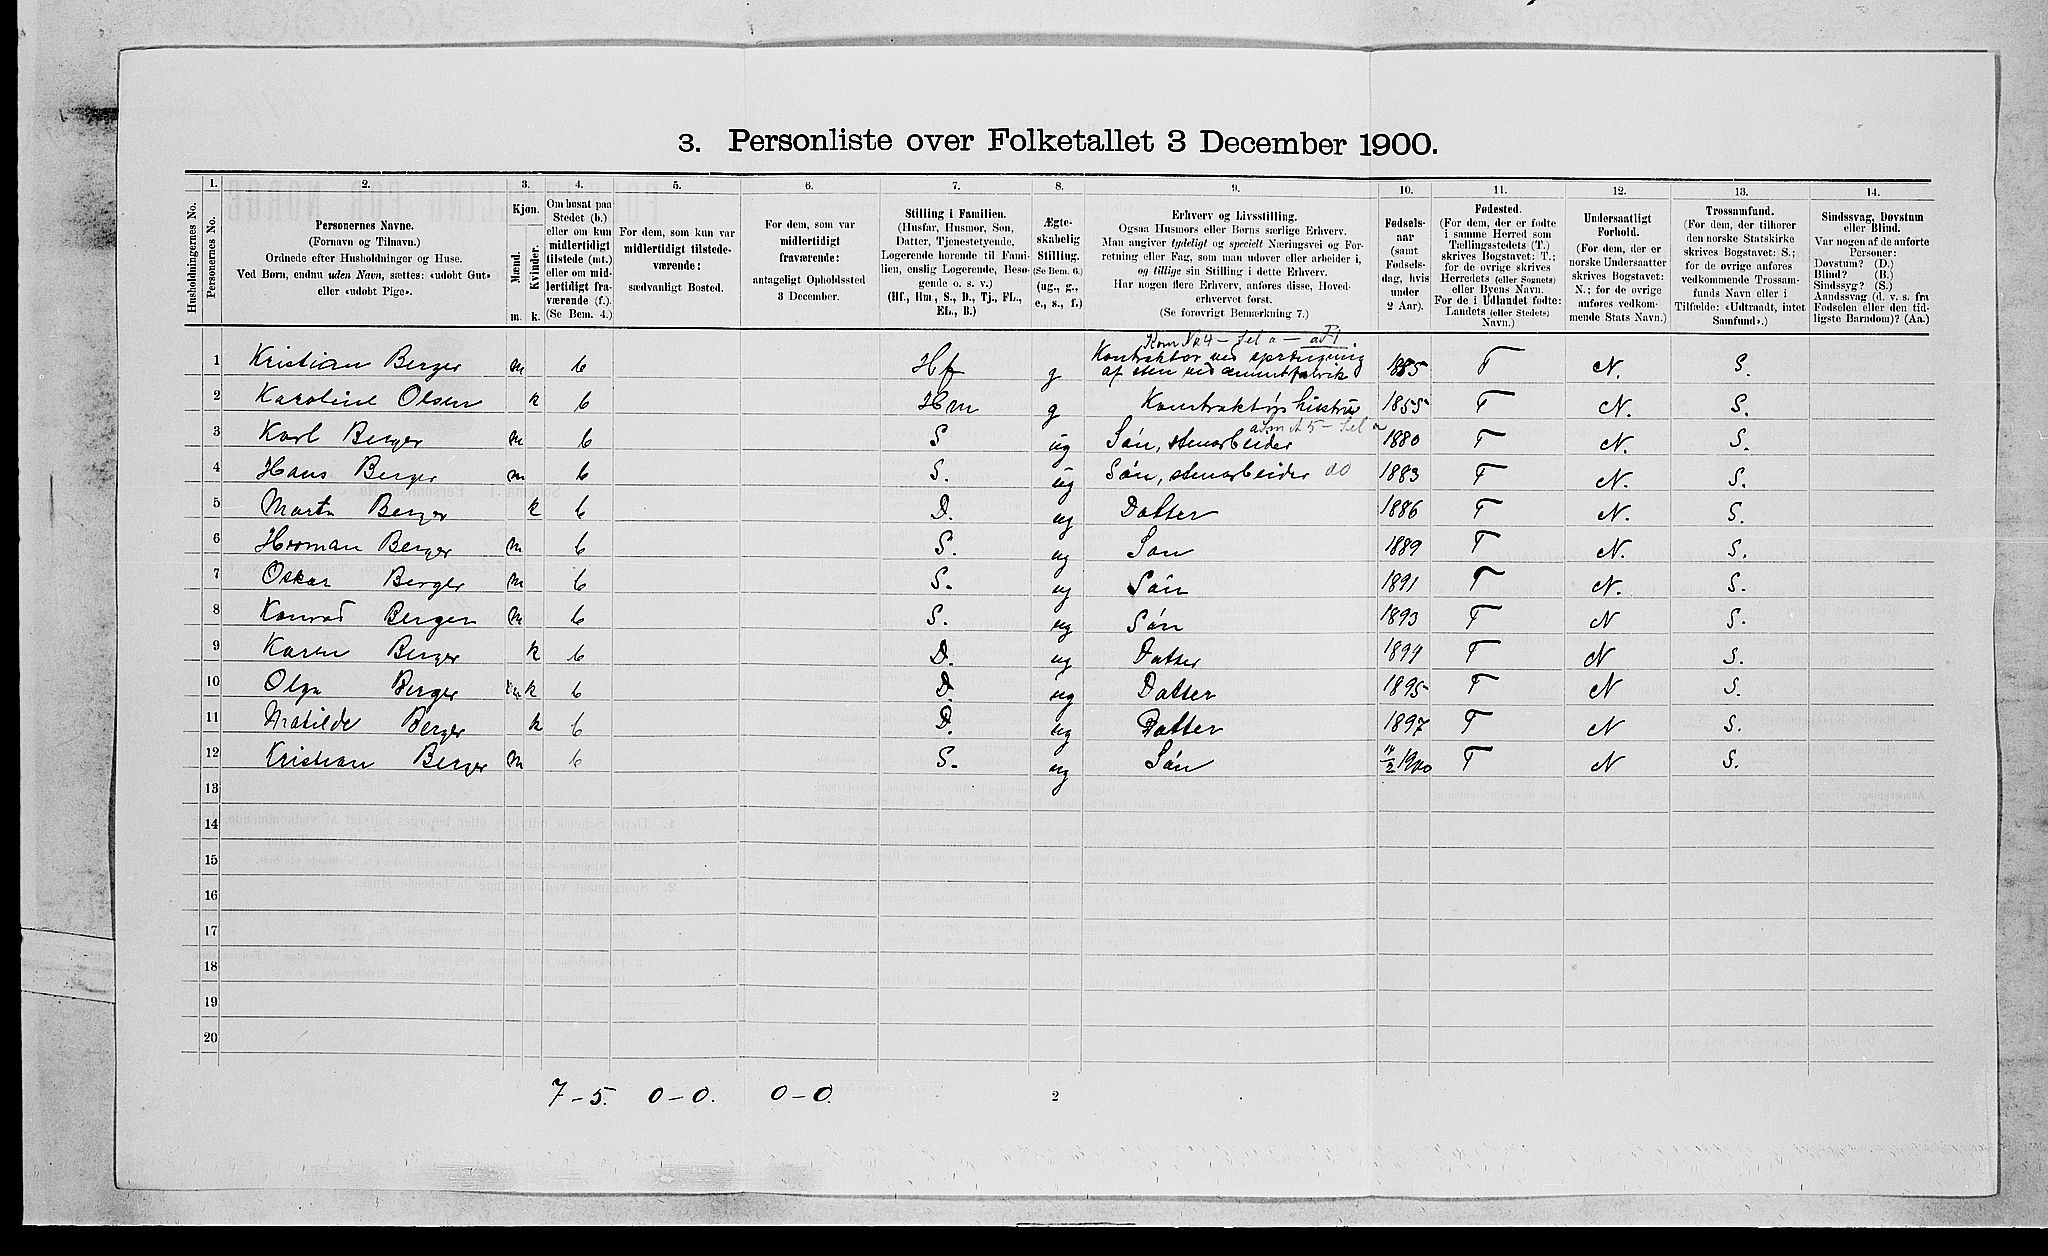 3. Personliste over Folketallet 3 December 1900.
1. 2. 3. 4. 5. 6. 7. 8. 9. 10. 11. 12. 13. 14.
Husholdningernes No.
Personernes No.
Personernes Navne.
(Fornavn og Tilnavn.)
Ordnede efter Husholdninger og Huse.
Ved Børn, endnu uden Navn, sættes: «udøbt Gut»
eller «udøbt Pige».
Kjøn.
Mænd. Kvinder.
m. k.
Om bosat paa
Stedet (b.)
eller om kun
midlertidigt
tilstede (mt.)
eller om mid-
lertidigt fra-
værende (f.).
(Se Bem. 4.)
For dem, som kun var
midlertidigt tilstede-
værende:
sædvanligt Bosted.
For dem, som var
midlertidigt
fraværende:
antageligt Opholdssted
3 December.
Stilling i Familien.
(Husfar, Husmor, Søn,
Datter, Tjenestetyende,
Logerende hørende til Fami-
lien, enslig Logerende, Besø-
gende o. s. v.)
(Hf., Hm., S., D., Tj., FL.,
EL., B.)
Ægte-
skabelig
Stilling.
(Se Bem. 6.)
(ug., g.,
e., s., f.)
Erhverv og Livsstilling.
Ogsaa Husmors eller Børns særlige Erhverv.
Man angiver tydeligt og specielt Næringsvei og For-
retning eller Fag, som man udøver eller arbeider i,
og tillige sin Stilling i dette Erhverv.
Har nogen flere Erhverv, anføres disse, Hoved-
erhvervet først.
(Se forøvrigt Bemærkning 7.)
Fødsels-
aar
(samt
Fødsels-
dag, hvis
under
2 Aar).
Fødested.
(For dem, der er fødte
i samme Herred som
Tællingsstedets (T.)
skrives Bogstavet: T.;
for de øvrige skrives
Herredets (eller Sognets)
eller Byens Navn.
For de i Udlandet fødte:
Landets (eller Stedets)
Navn.)
Undersaatligt
Forhold.
(For dem, der er
norske Undersaatter
skrives Bogstavet:
N.; for de øvrige
anføres vedkom-
mende Stats Navn.)
Trossamfund.
(For dem, der tilhører
den norske Statskirke
skrives Bogstavet: S.;
for de øvrige anføres
vedkommende Trossam-
funds Navn eller i
Tilfælde: «Udtraadt, intet
Samfund».)
Sindssvag, Døvstum
eller Blind.
Var nogen af de anførte
Personer:
Døvstum? (D.)
Blind? (B.)
Sindssyg? (S.)
Aandssvag (d. v. s. fra
Fødselen eller den tid-
ligste Barndom)? (Aa.)
1 Kristian Berger m b Hf g Kontraktør ved sprængning T N. S.
af sten ved cementfabrik
2 Karoline Olsen k b Hm g Kontraktørs hustru 1855 T N. S.
3 Karl Berger m b S ug Søn, stenarbeider 1880 T N. S.
4 Hans Berger m b S. ug Søn, stenarbeider do 1883 T N. S.
5 Marta Berger k b D. ug Datter 1886 T N. S.
6 Herman Berger m b S. ug Søn 1889 T N. S.
7 Oskar Berger m b S. ug Søn 1891 T N. S.
8 Konrad Berger m b S. ug Søn 1893 T N S.
9 Karen Berger k b D. ug Datter 1894 T N S.
10 Olga Berger k b D. ug Datter 1895 T N S.
11 Matilde Berger k b D. ug Datter 1897 T N S.
12 Kristian Berger m b S. ug Søn 1900 T N S.
13
14
15
16
17
18
19
20
7-5. 0-0. 0-0. 2